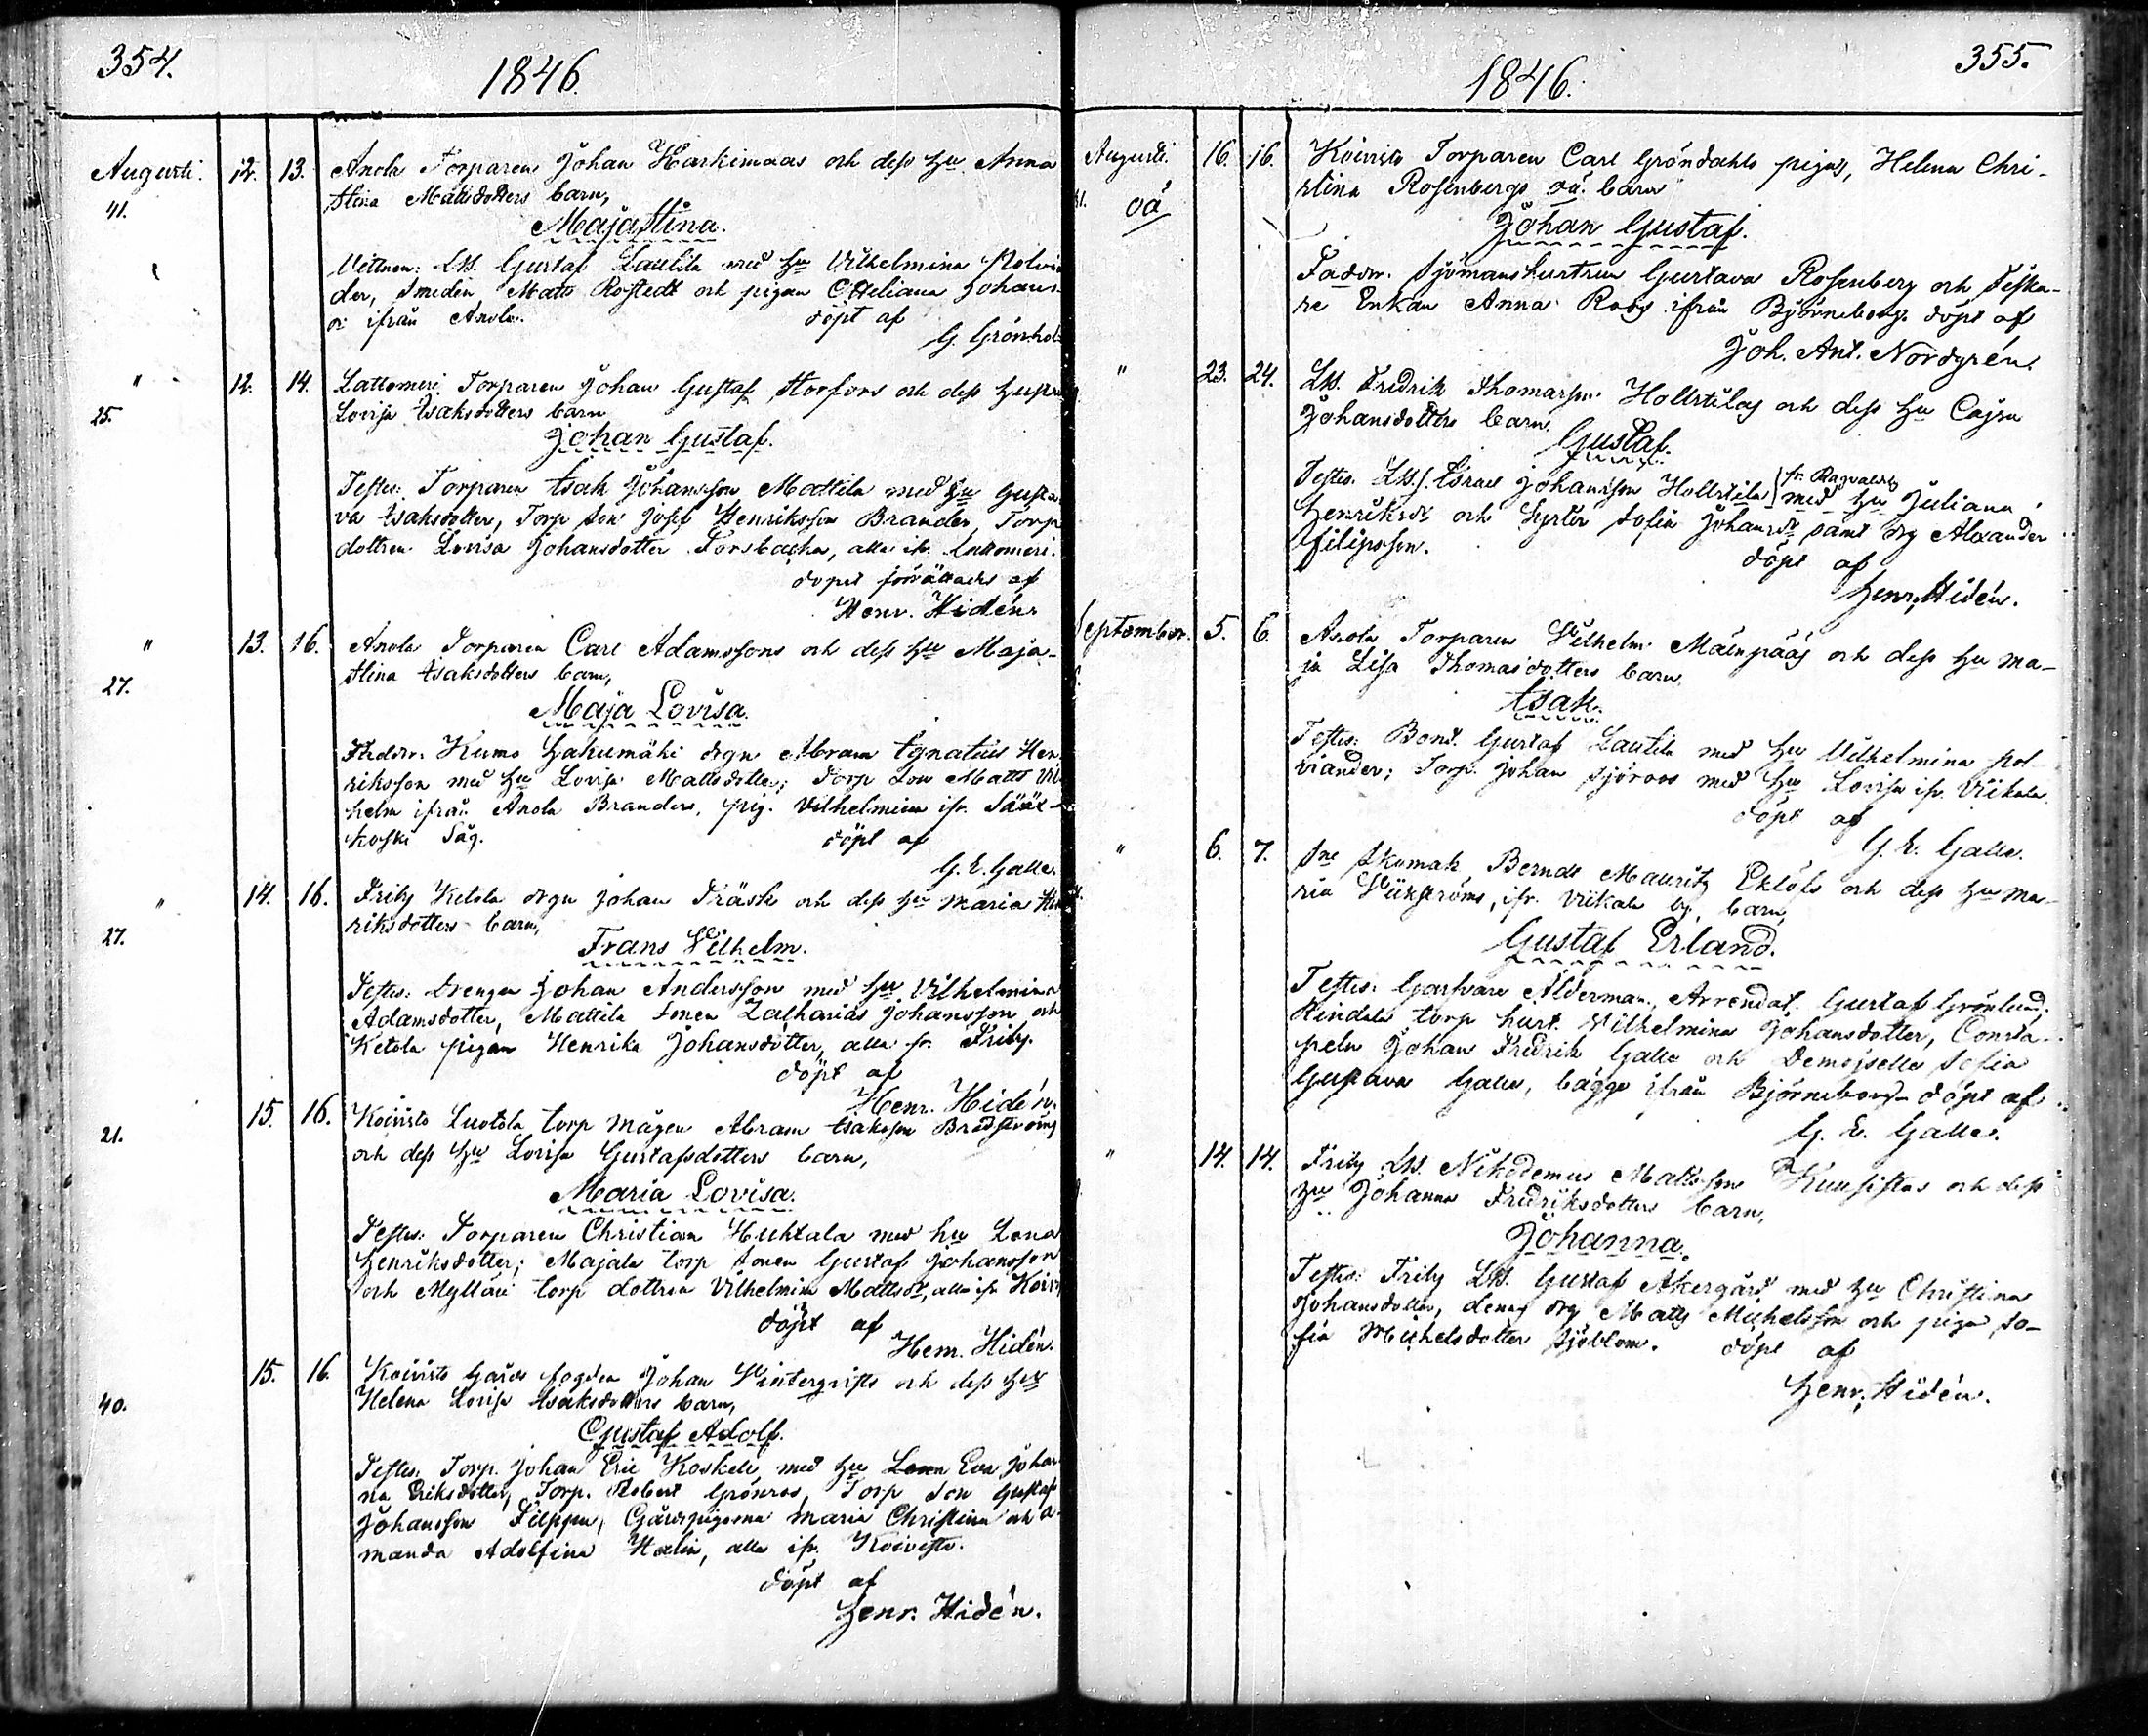 354.
1846.
Augusti. 12. 13. Anola Torparen Johan Harkimaas och dess Hu Anna
41. Stina Mattsdotters barn,
Maja Stina.
Vittnen: Ldb. Gustaf Lautila med Hu Vilhelmina Polvi
der, Smeden Matts Rostedt och pigan Otteliana Johans
dr ifrån Anola. döpt af
G. Grönhol
" 12. 14. Lattomeri Torparen Johan Gustaf Storfors och dess Hustru
25. Lovisa Isaksdotters barn
Johan Gustaf.
Testes: Torparen Isak Johansson Mattila med Hu Gusta
va Isaksdotter, Torp Son Josef Henriksson Brander, Torp
dottren Lovisa Johansdotter Torsbacka, alla ifr. Lattomeri.
dopet förrättades af
Henr. Hidén.
" 13. 16. Anola Torparen Carl Adamssons och dess Hu Maja
27. Stina Isaksdotters barn,
Maja Lovisa.
Faddr: Kumo Hakumäki drgn Abram Ignatius Hen
riksson med Hu Lovisa Mattsdotter; Torp Son Matts Vil
helm ifrån Anola Branders, pig. Vilhelmina ifr. Säax-
koski Såg. döpt af
G. E. Galle.
" 14. 16. Fritz Ketola drgn Johan Träsk och dess Hu Maria Hen
27. riksdotters barn,
Frans Vilhelm.
Testes: Drengen Johan Andersson med Hu Vilhelmina
Adamsdotter, Mattila Sonen Zacharias Johansson och
Ketola pigan Henrika Johansdotter, alla fr. Fritz.
döpt af
Henr. Hidén.
15. 16. Koivisto Luotola torp mågen Abram Isaksson Brodströms
21. och dess Hu Lovisa Gustafsdotters barn,
Maria Lovisa.
Testes: Torparen Christian Huhtala med hu Lena
Henriksdotter; Majala torp Sonen Gustaf Johansson
och Myllari torp dottren Vilhelmina Mattsdr, alla ifr Koiv
döpt af
Henr. Hidén.
15. 16. Koivisto Gårds fogden Johan Vintergvists och dess Hu
40. Helena Lovisa Isaksdotters barn,
Gustaf Adolf.
Testes: Torp. Johan Eric Koskele, med Hu Lena Eva Johan
na Eriksdotter, Torp. Robert Grönros, Torp Son Gustaf
Johansson Filppu, Gårdspigorna Maria Christina och A-
manda Adolfina Halin, alla ifr. Koivisto.
döpt af
Henr. Hidén.
355.
1846.
Augusti. 16. 16. Koivisto Torparen Carl Gröndahls pigas, Helena Chri-
oä stina Rosenbergs oä. barn
Johan Gustaf.
Faddr. Sjömanshustrun Gustava Rosenberg och Fiska-
re Enkan Anna Roos ifrån Björneborg. döpt af
Joh. Ant. Nordgrén.
" 23. 24. Ldb. Fredrik Thomasson Hollstilas och dess Hu Cajsa
Johansdotters barn,
Gustaf.
fr. Ragvaldsby
Testes. Ldb. Israel Johansson Hollstila med Hu Juliana
Henriksdr och Syster Sofia Johansdr samt drg Alexander
Filipsson. döpt af
Henr. Hidén.
September. 5. 6. Anola Torparen Vilhelm Mäenpääs och dess Hu Ma-
ja Lisa Thomasdotters barn,
Isak.
Testes: Bond. Gustaf Lautila med Hu Vilhelmina Pol
viander; Torp. Johan Sjöroos med Hu Lovisa ifr. Viikala
döpt af
G. E. Galle.
" 6. 7. Sne Skomak. Bernds Mauritz Eklöfs och dess Hu Ma-
ria Vikströms, ifr. Viikala by, barn,
Gustaf Erland.
Testes: Garfvare Ålderman, Arrendat. Gustaf Grönlund.
Rindala torp hust. Vilhelmina Johansdotter, Consta-
peln Johan Fredrik Galle och Demoiselle Sofia
Gustava Galle, bägge ifrån Björneborg. döpt af
G. E. Galle.
" 14. 14. Fritz Ldb. Nikodemus Mattssons Kuusistos och dess
Hu Johanna Fredriksdotters barn,
Johanna.
Testes: Fritz Ldb. Gustaf Åkergård med Hu Christina
Johansdotter, dennes drg Matts Michelsson och piga So-
fia Michelsdotter Sjöblom. döpt af
Henr. Hidén.